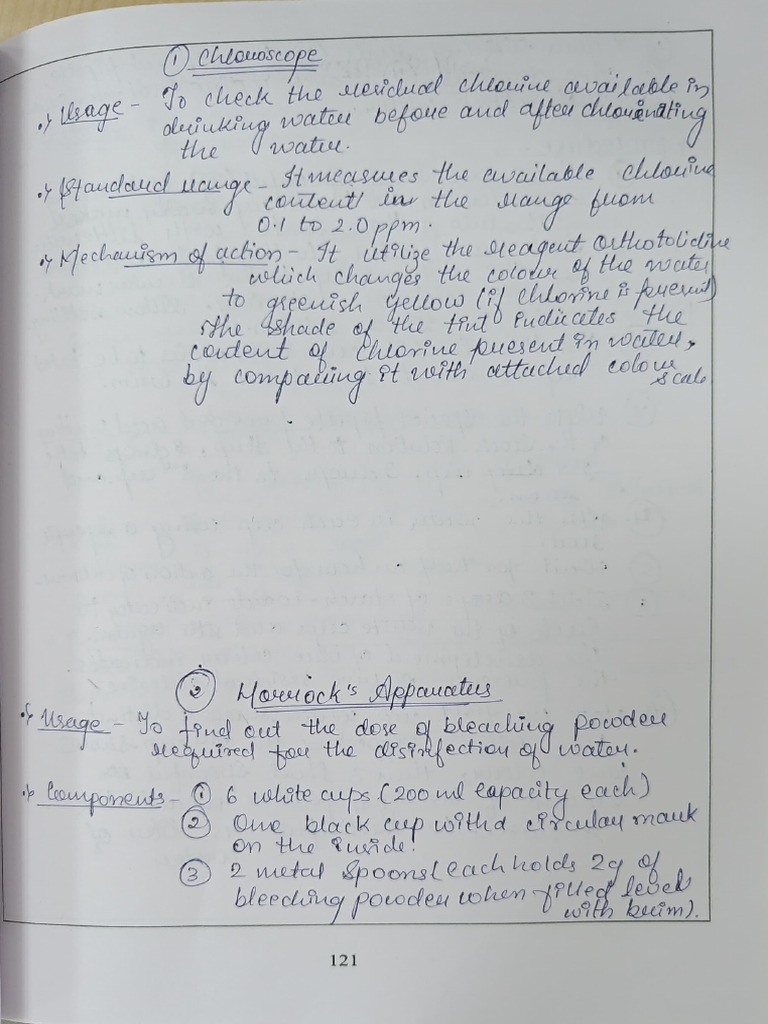 ① Chloroscope
•) Usage - To check the residual chlorine available in
drinking water before and after chlorinating
the water.
•) Standard range - It measures the available chlorine
content in the range from
0.1 to 2.0 ppm.
•) Mechanism of action - It utilize the reagent Orthotolidine
which changes the colour of the water
to greenish yellow (if chlorine is present)
The shade of the tint indicates the
content of chlorine present in water,
by comparing it with attached colour
scale
② Horrock's Apparatus
•) Usage - To find out the dose of bleaching powder
required for the disinfection of water.
•) Components - ① 6 white cups (200 ml capacity each)
② One black cup with a circular mark
on the inside.
③ 2 metal spoons (each holds 2g of
bleeching powder when filled level
with brim).
121